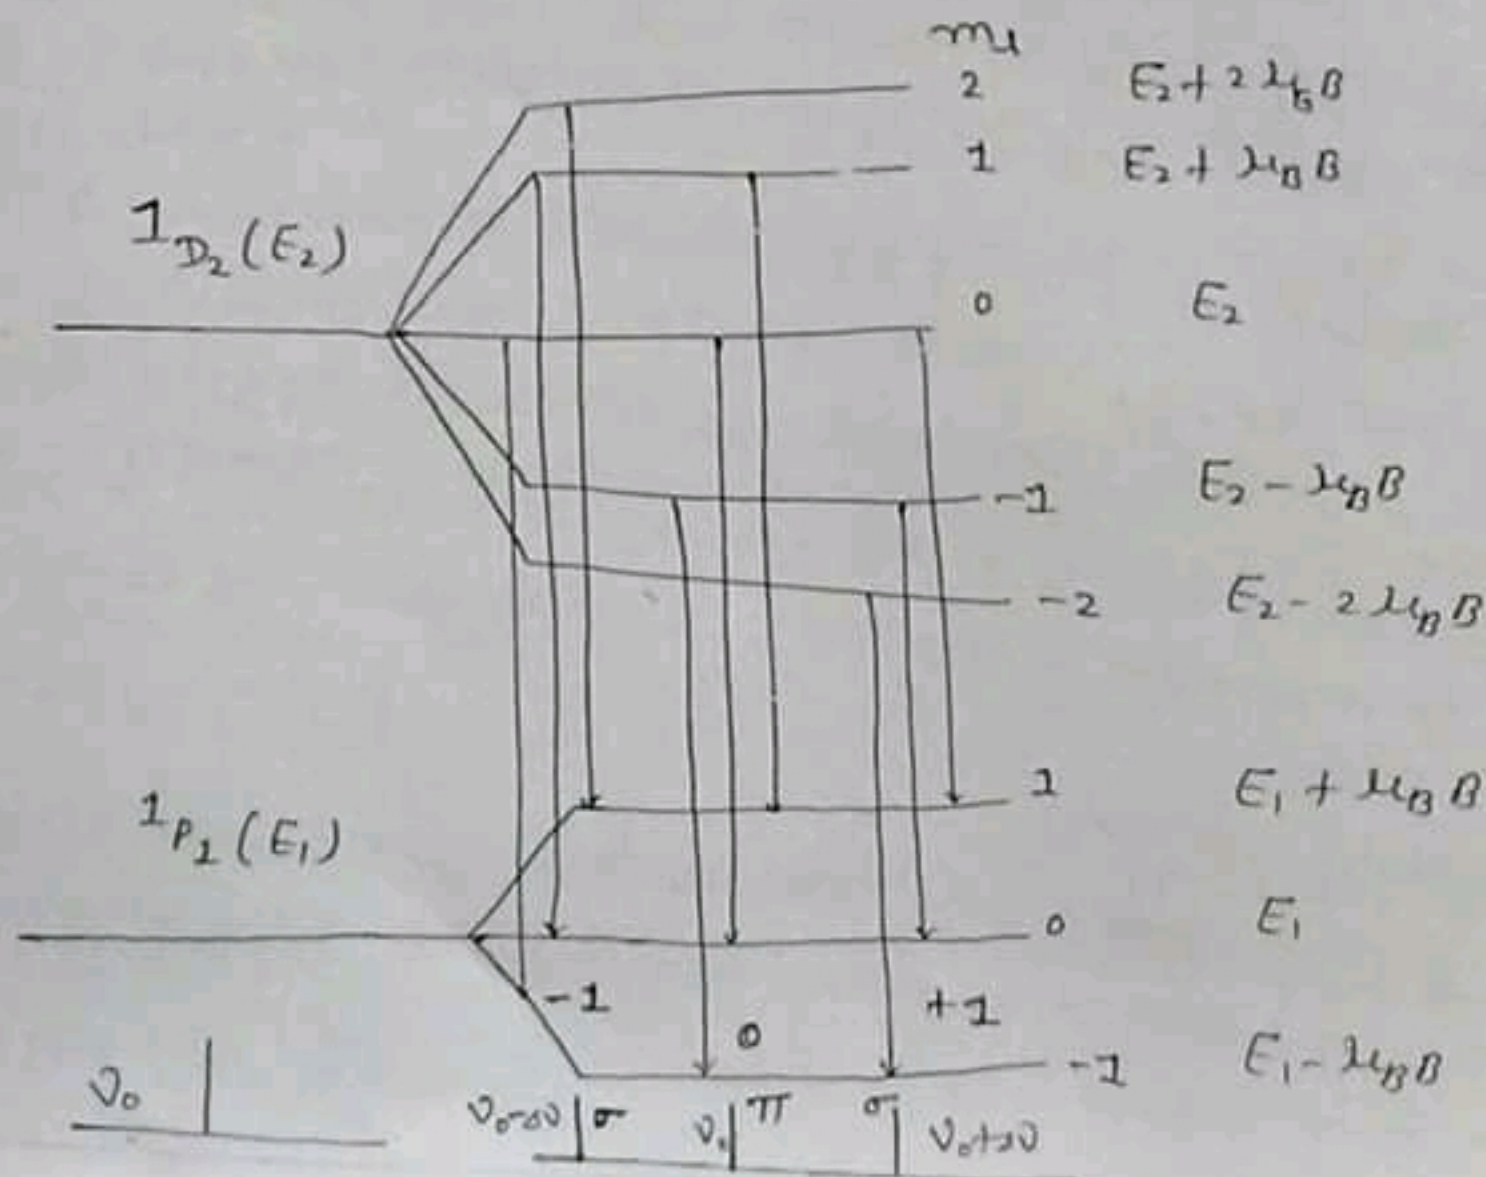 m_l
2 E₂ + 2 μ_B B
1 E₂ + μ_B B
¹D₂ (E₂)
0 E₂
-1 E₂ - μ_B B
-2 E₂ - 2 μ_B B
1 E₁ + μ_B B
¹P₁ (E₁)
0 E₁
-1 0 +1
-1 E₁ - μ_B B
ν₀
ν₀-Δν σ ν₀ π σ ν₀+Δν